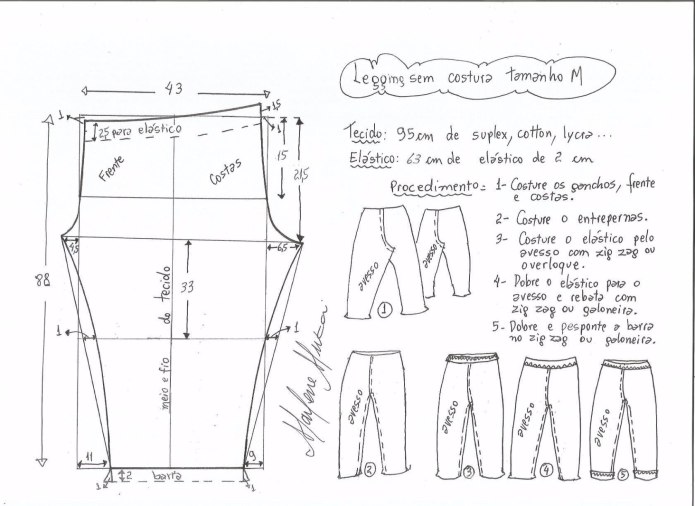 Legging sem costura tamanho M
Tecido: 95 cm de suplex, cotton, lycra ...
Elástico: 63 cm de elástico de 2 cm
Procedimento= 1- Costure os ganchos, frente
e costas.
2- Costure o entrepernas.
3- Costure o elástico pelo
avesso com zig zag ou
overloque.
4- Dobre o elástico para o
avesso e rebata com
zig zag ou galoneira.
5- Dobre e pesponte a barra
no zig zag ou galoneira.
43
1
1,5
1
2,5 para elástico
15
21,5
Frente
Costas
4,5
6,5
88
33
meio e fio do tecido
1
1
11
9
2
barra
1
1
Marlene Mukai
avesso
avesso
1
avesso
2
avesso
3
avesso
4
avesso
5